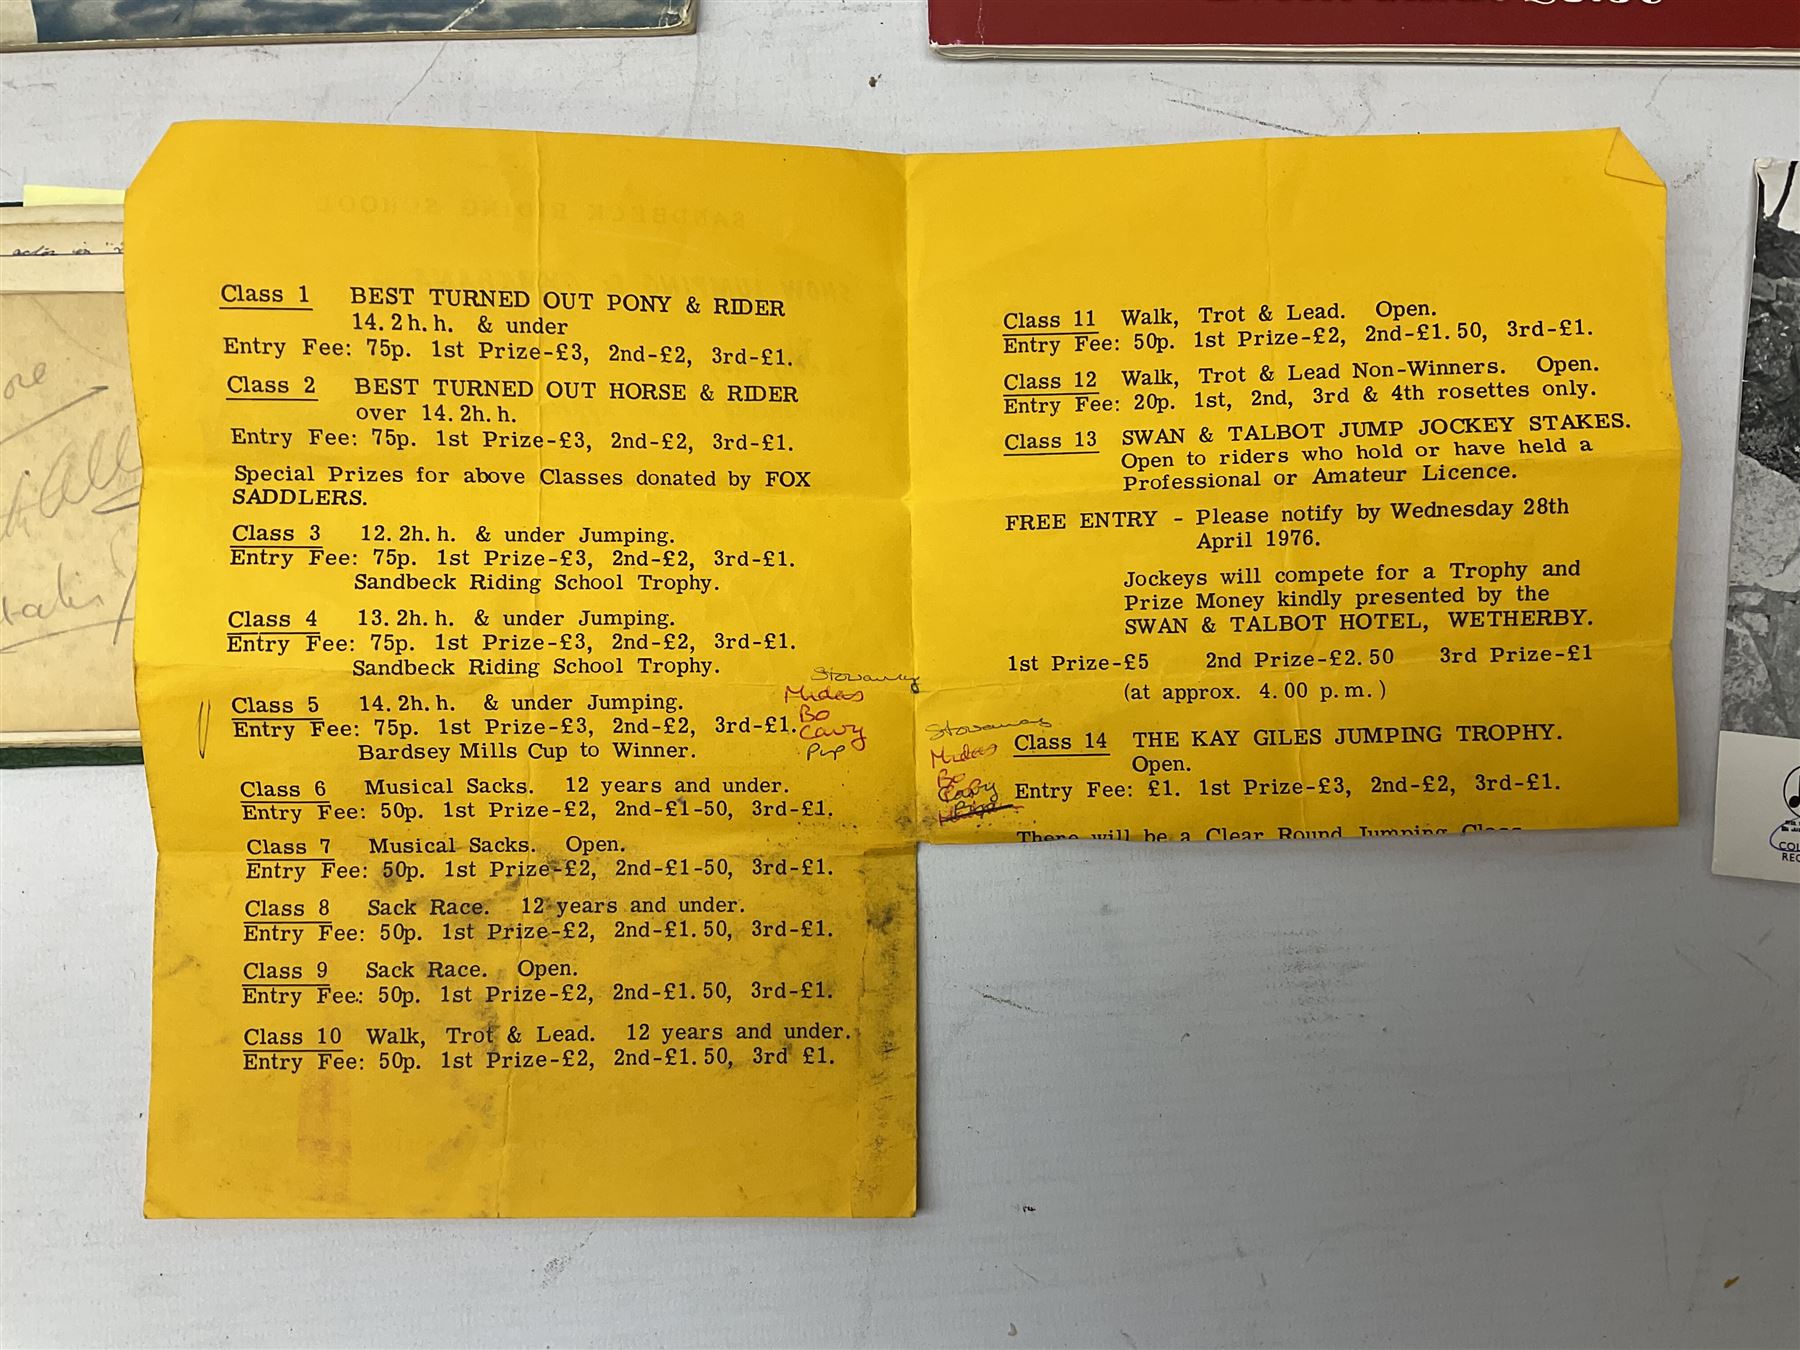 Class 1 BEST TURNED OUT PONY & RIDER
14.2h.h. & under
Entry Fee: 75p. 1st Prize-£3, 2nd-£2, 3rd-£1.
Class 2 BEST TURNED OUT HORSE & RIDER
over 14.2h.h.
Entry Fee: 75p. 1st Prize-£3, 2nd-£2, 3rd-£1.
Special Prizes for above Classes donated by FOX
SADDLERS.
Class 3 12.2h.h. & under Jumping.
Entry Fee: 75p. 1st Prize-£3, 2nd-£2, 3rd-£1.
Sandbeck Riding School Trophy.
Class 4 13.2h.h. & under Jumping.
Entry Fee: 75p. 1st Prize-£3, 2nd-£2, 3rd-£1.
Sandbeck Riding School Trophy.
Class 5 14.2h.h. & under Jumping.
Entry Fee: 75p. 1st Prize-£3, 2nd-£2, 3rd-£1.
Bardsey Mills Cup to Winner.
Stowaway
Midas
Bo
Cavy
Pip
Class 6 Musical Sacks. 12 years and under.
Entry Fee: 50p. 1st Prize-£2, 2nd-£1-50, 3rd-£1.
Class 7 Musical Sacks. Open.
Entry Fee: 50p. 1st Prize-£2, 2nd-£1-50, 3rd-£1.
Class 8 Sack Race. 12 years and under.
Entry Fee: 50p. 1st Prize-£2, 2nd-£1.50, 3rd-£1.
Class 9 Sack Race. Open.
Entry Fee: 50p. 1st Prize-£2, 2nd-£1.50, 3rd-£1.
Class 10 Walk, Trot & Lead. 12 years and under.
Entry Fee: 50p. 1st Prize-£2, 2nd-£1.50, 3rd £1.
Class 11 Walk, Trot & Lead. Open.
Entry Fee: 50p. 1st Prize-£2, 2nd-£1.50, 3rd-£1.
Class 12 Walk, Trot & Lead Non-Winners. Open.
Entry Fee: 20p. 1st, 2nd, 3rd & 4th rosettes only.
Class 13 SWAN & TALBOT JUMP JOCKEY STAKES.
Open to riders who hold or have held a
Professional or Amateur Licence.
FREE ENTRY - Please notify by Wednesday 28th
April 1976.
Jockeys will compete for a Trophy and
Prize Money kindly presented by the
SWAN & TALBOT HOTEL, WETHERBY.
1st Prize-£5 2nd Prize-£2.50 3rd Prize-£1
(at approx. 4.00 p.m.)
Stowaway
Midas
Bo
Cavy
Class 14 THE KAY GILES JUMPING TROPHY.
Open.
Entry Fee: £1. 1st Prize-£3, 2nd-£2, 3rd-£1.
There will be a Clear Round Jumping Class